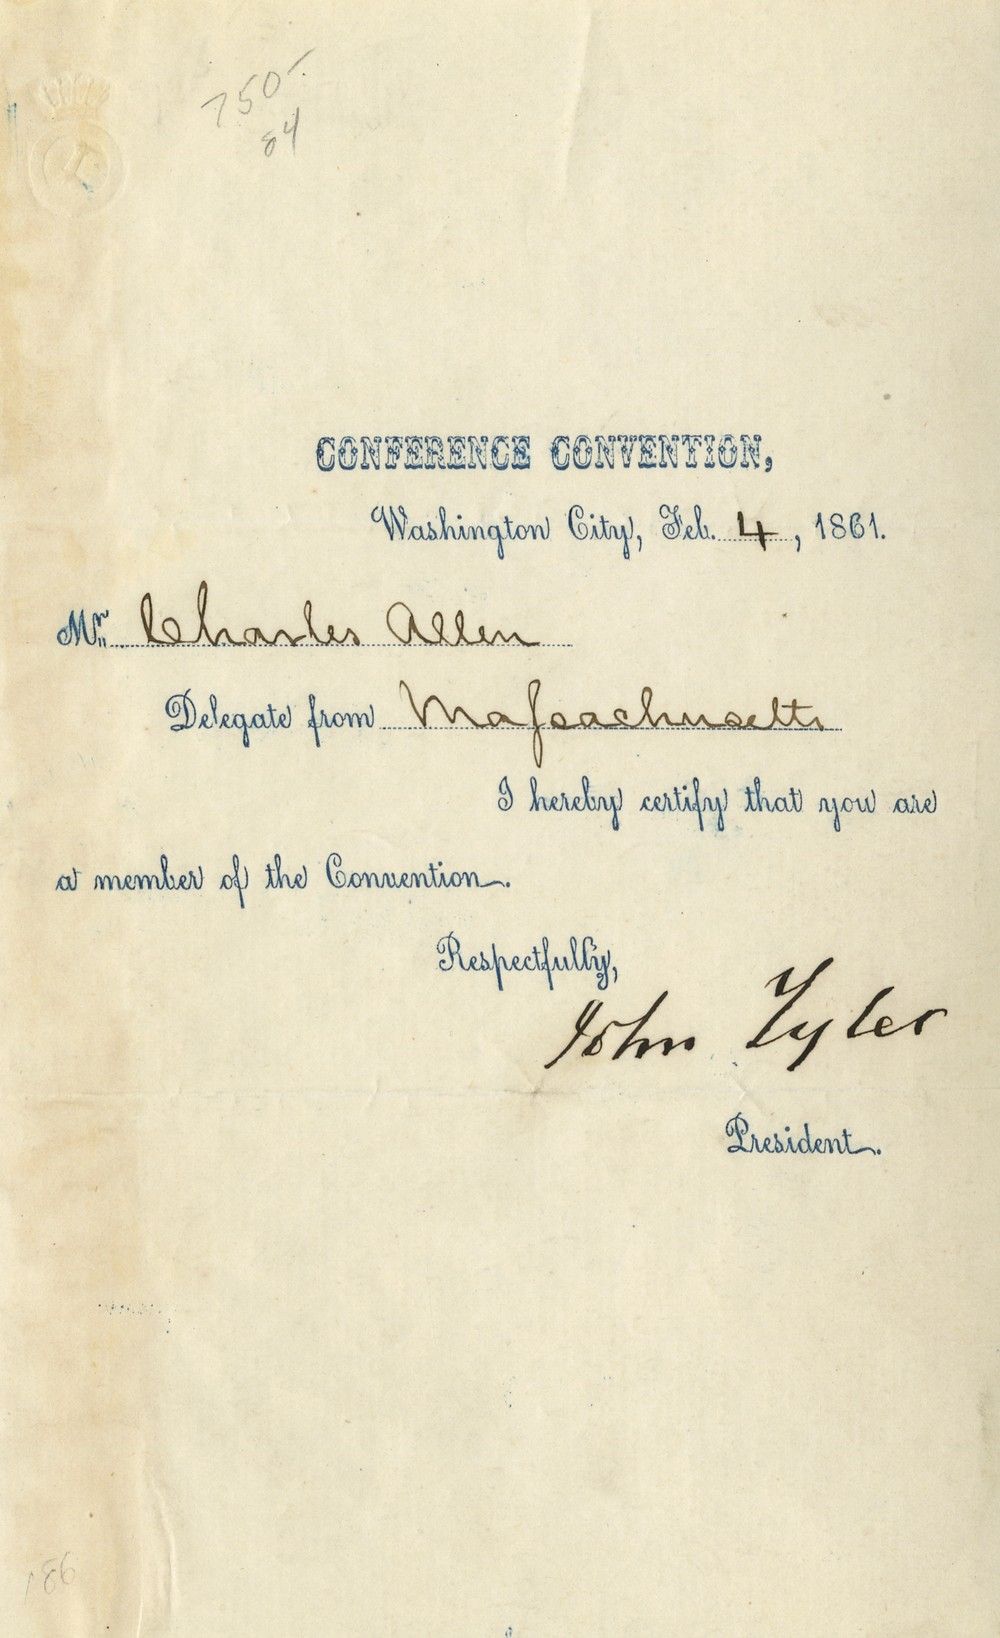 750-
84
CONFERENCE CONVENTION,
Washington City, Feb. 4, 1861.
Mr. Charles Allen
Delegate from Maſsachusetts
I hereby certify that you are
a member of the Convention.
Respectfully,
John Tyler
President.
186